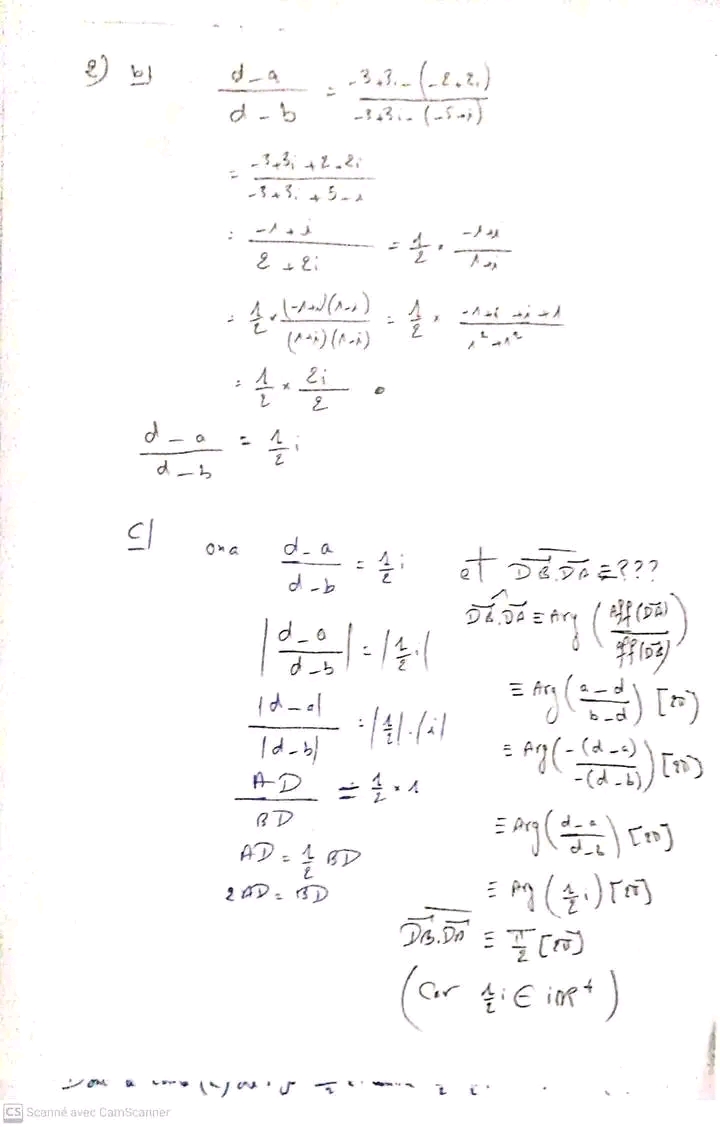 2) b) \frac{d-a}{d-b} = \frac{-3+3i-(-2+2i)}{-3+3i-(-5+i)}
= \frac{-3+3i+2-2i}{-3+3i+5-i}
= \frac{-1+i}{2+2i} = \frac{1}{2} \times \frac{-1+i}{1+i}
= \frac{1}{2} \times \frac{(-1+i)(1-i)}{(1+i)(1-i)} = \frac{1}{2} \times \frac{-1+i+i+1}{1^2+1^2}
= \frac{1}{2} \times \frac{2i}{2}
\frac{d-a}{d-b} = \frac{1}{2} i
c) on a \frac{d-a}{d-b} = \frac{1}{2} i
|\frac{d-a}{d-b}| = |\frac{1}{2} i|
\frac{|d-a|}{|d-b|} = |\frac{1}{2}|.|i|
\frac{AD}{BD} = \frac{1}{2} \times 1
AD = \frac{1}{2} BD
2AD = BD
et \overline{DB.DA} ≡ ???
DB.DA ≡ Arg (\frac{Aff(DA)}{Aff(DB)})
≡ Arg (\frac{a-d}{b-d}) [2π]
≡ Arg (\frac{-(d-a)}{-(d-b)}) [2π]
≡ Arg (\frac{d-a}{d-b}) [2π]
≡ Arg (\frac{1}{2} i) [2π]
\overline{DB.DA} ≡ \frac{π}{2} [2π]
(Car \frac{1}{2} i ∈ iIR⁺)
CS Scanné avec CamScanner